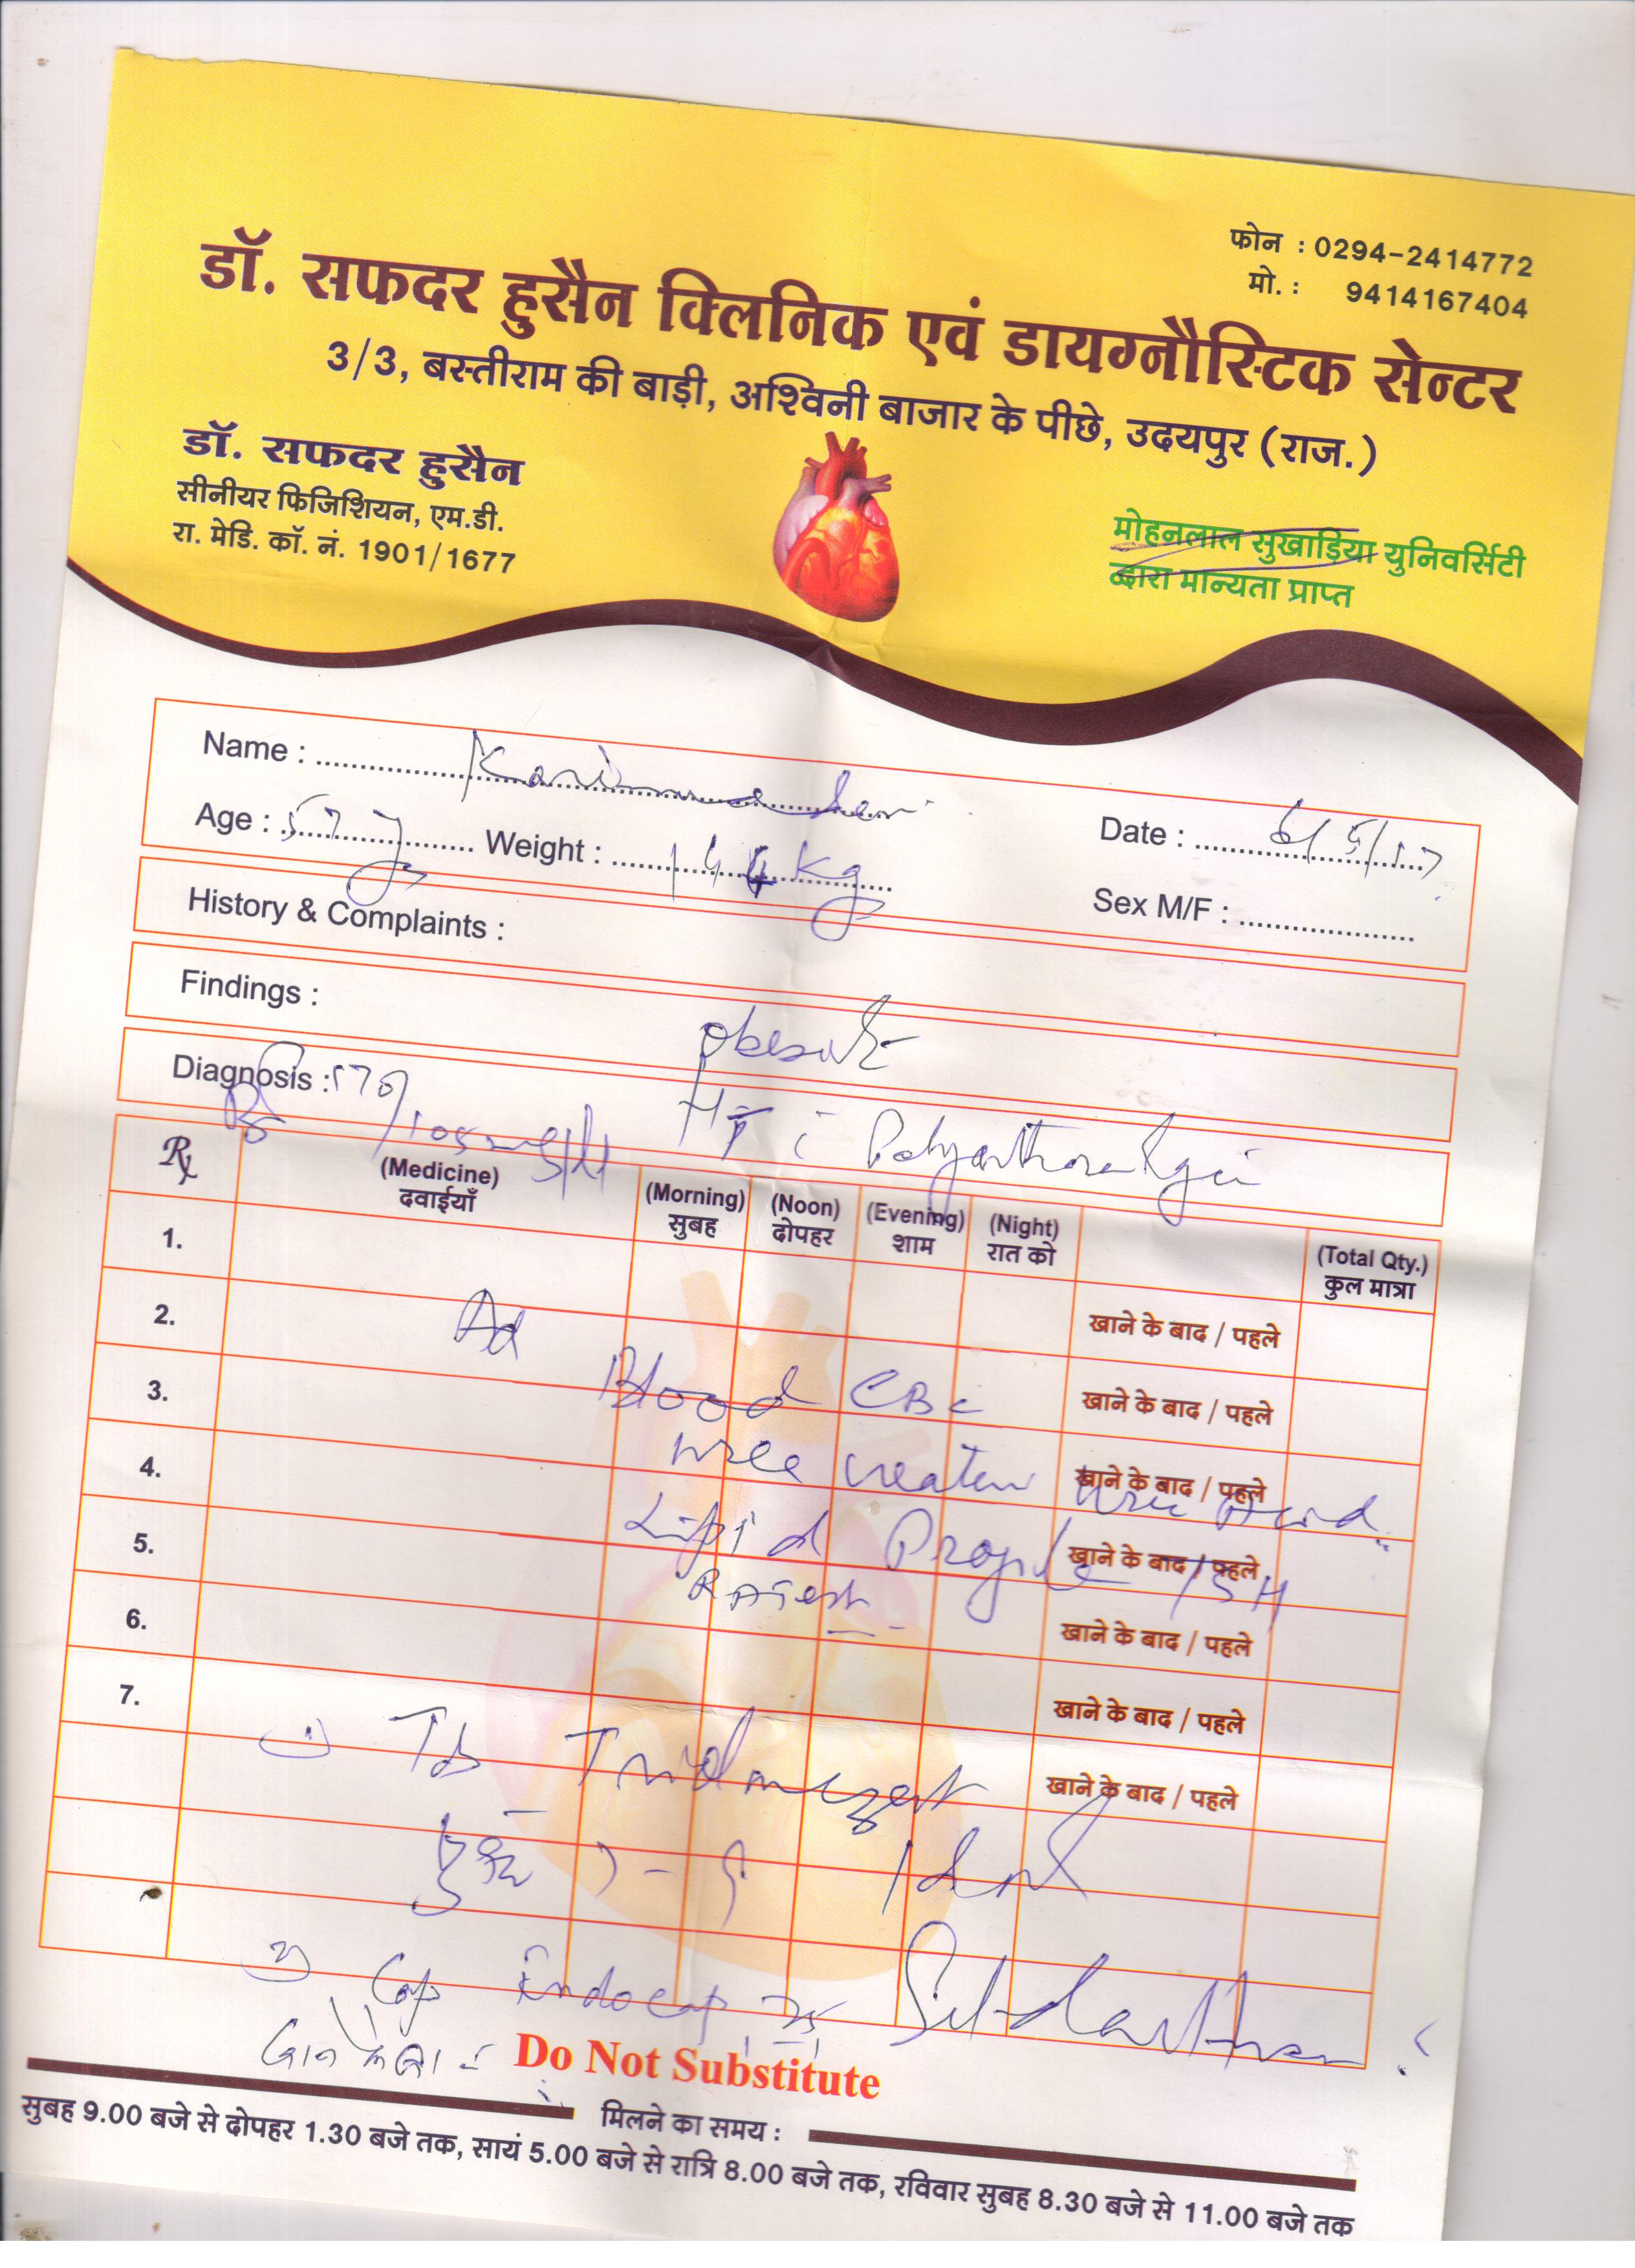 फोन : 0294-2414772
मो. : 9414167404
डॉ. सफदर हुसैन क्लिनिक एवं डायग्नौस्टिक सेन्टर
3/3, बस्तीराम की बाड़ी, अश्विनी बाजार के पीछे, उदयपुर (राज.)
डॉ. सफदर हुसैन
सीनीयर फिजिशियन, एम.डी.
रा. मेडि. कॉ. नं. 1901/1677
मोहनलाल सुखाड़िया युनिवर्सिटी
द्वारा मान्यता प्राप्त
Name :
Date : 6/5/17
Age : 57 y Weight : 144 kg
Sex M/F :
History & Complaints :
Findings :
Obesity
Diagnosis : 170/
HT c Polyarthralgia
Rx (Medicine) (Morning) (Noon) (Evening) (Night) (Total Qty.)
दवाईयाँ सुबह दोपहर शाम रात को कुल मात्रा
1. खाने के बाद / पहले
2. खाने के बाद / पहले
Ad
3. खाने के बाद / पहले
Blood CBC
4. खाने के बाद / पहले
Uric Acid
5. खाने के बाद / पहले
Lipid Profile TSH
RA Test
6. खाने के बाद / पहले
7. खाने के बाद / पहले
1) Tb
2) Cap Endocap
Do Not Substitute
मिलने का समय :
सुबह 9.00 बजे से दोपहर 1.30 बजे तक, सायं 5.00 बजे से रात्रि 8.00 बजे तक, रविवार सुबह 8.30 बजे से 11.00 बजे तक